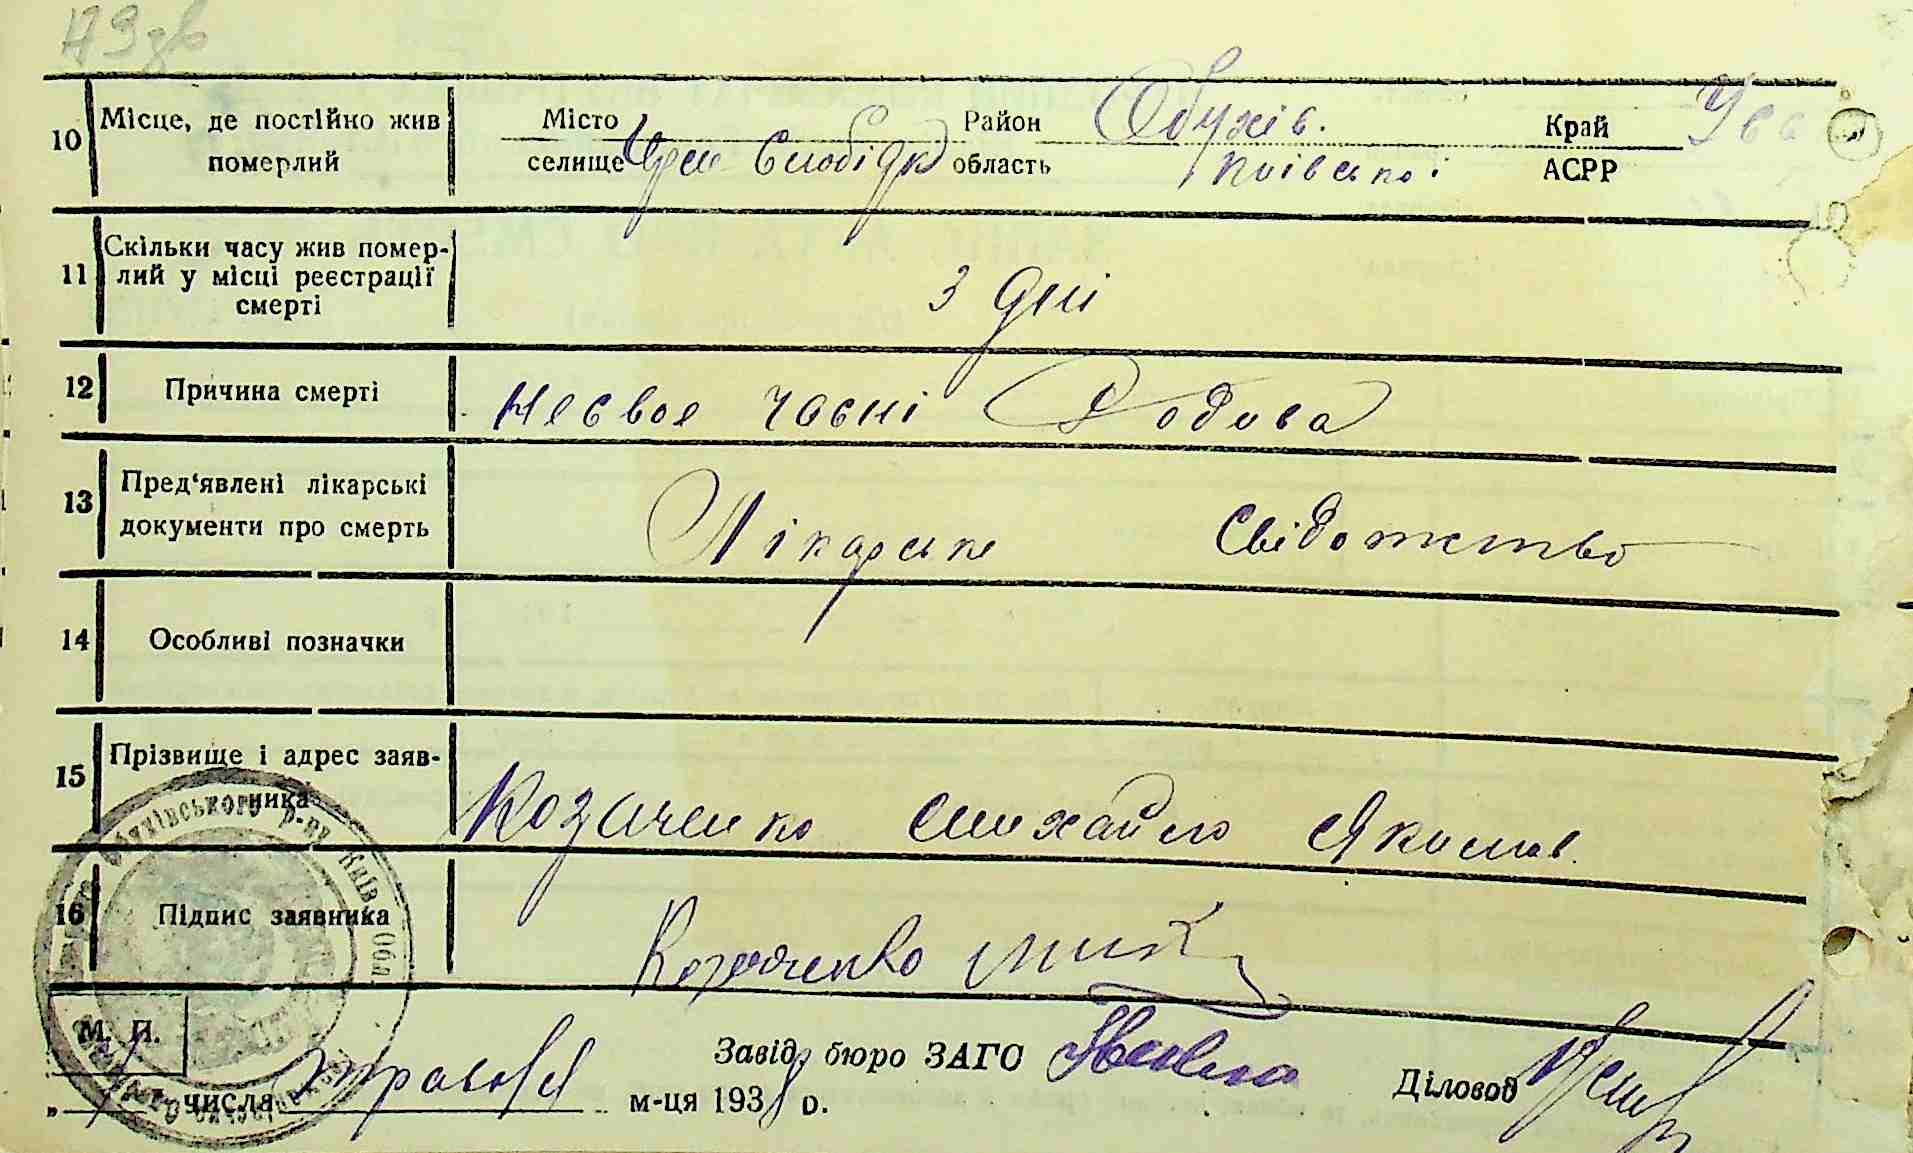 79зв
10 Місце, де постійно жив померлий
Місто селище Слобідк
Район Обухів.
область Київської
Край АСРР
11 Скільки часу жив помер-
лий у місці реєстрації
смерті
3 дні
12 Причина смерті
Несвоє часні Родива
13 Пред'явлені лікарські
документи про смерть
Лікарське Свідотство
14 Особливі позначки
15 Прізвище і адрес заяв-
ника
Козаченко Михайло Якимов.
16 Підпис заявника
Козаченко Мих
М. П.
Завід. бюро ЗАГС
Діловод
" числа травня м-ця 1938 р.
Обухівського р-ну Київ Обл